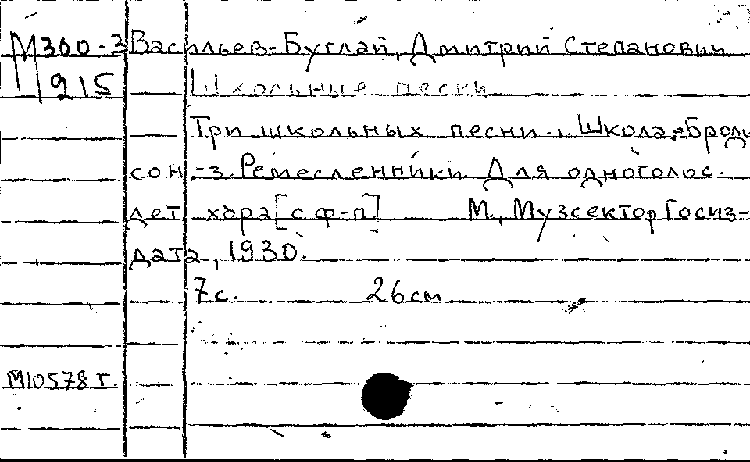 М360-3 Васильев-Буглай, Дмитрий Степанович
915 Школьные песни
Три школьных песни. Школа
сон.-3. Ремесленники Для одноголос.
дет. хора [с ф-п] М., Музсектор Госиз-
дата, 1930.
7с. 26см
М10578 г.